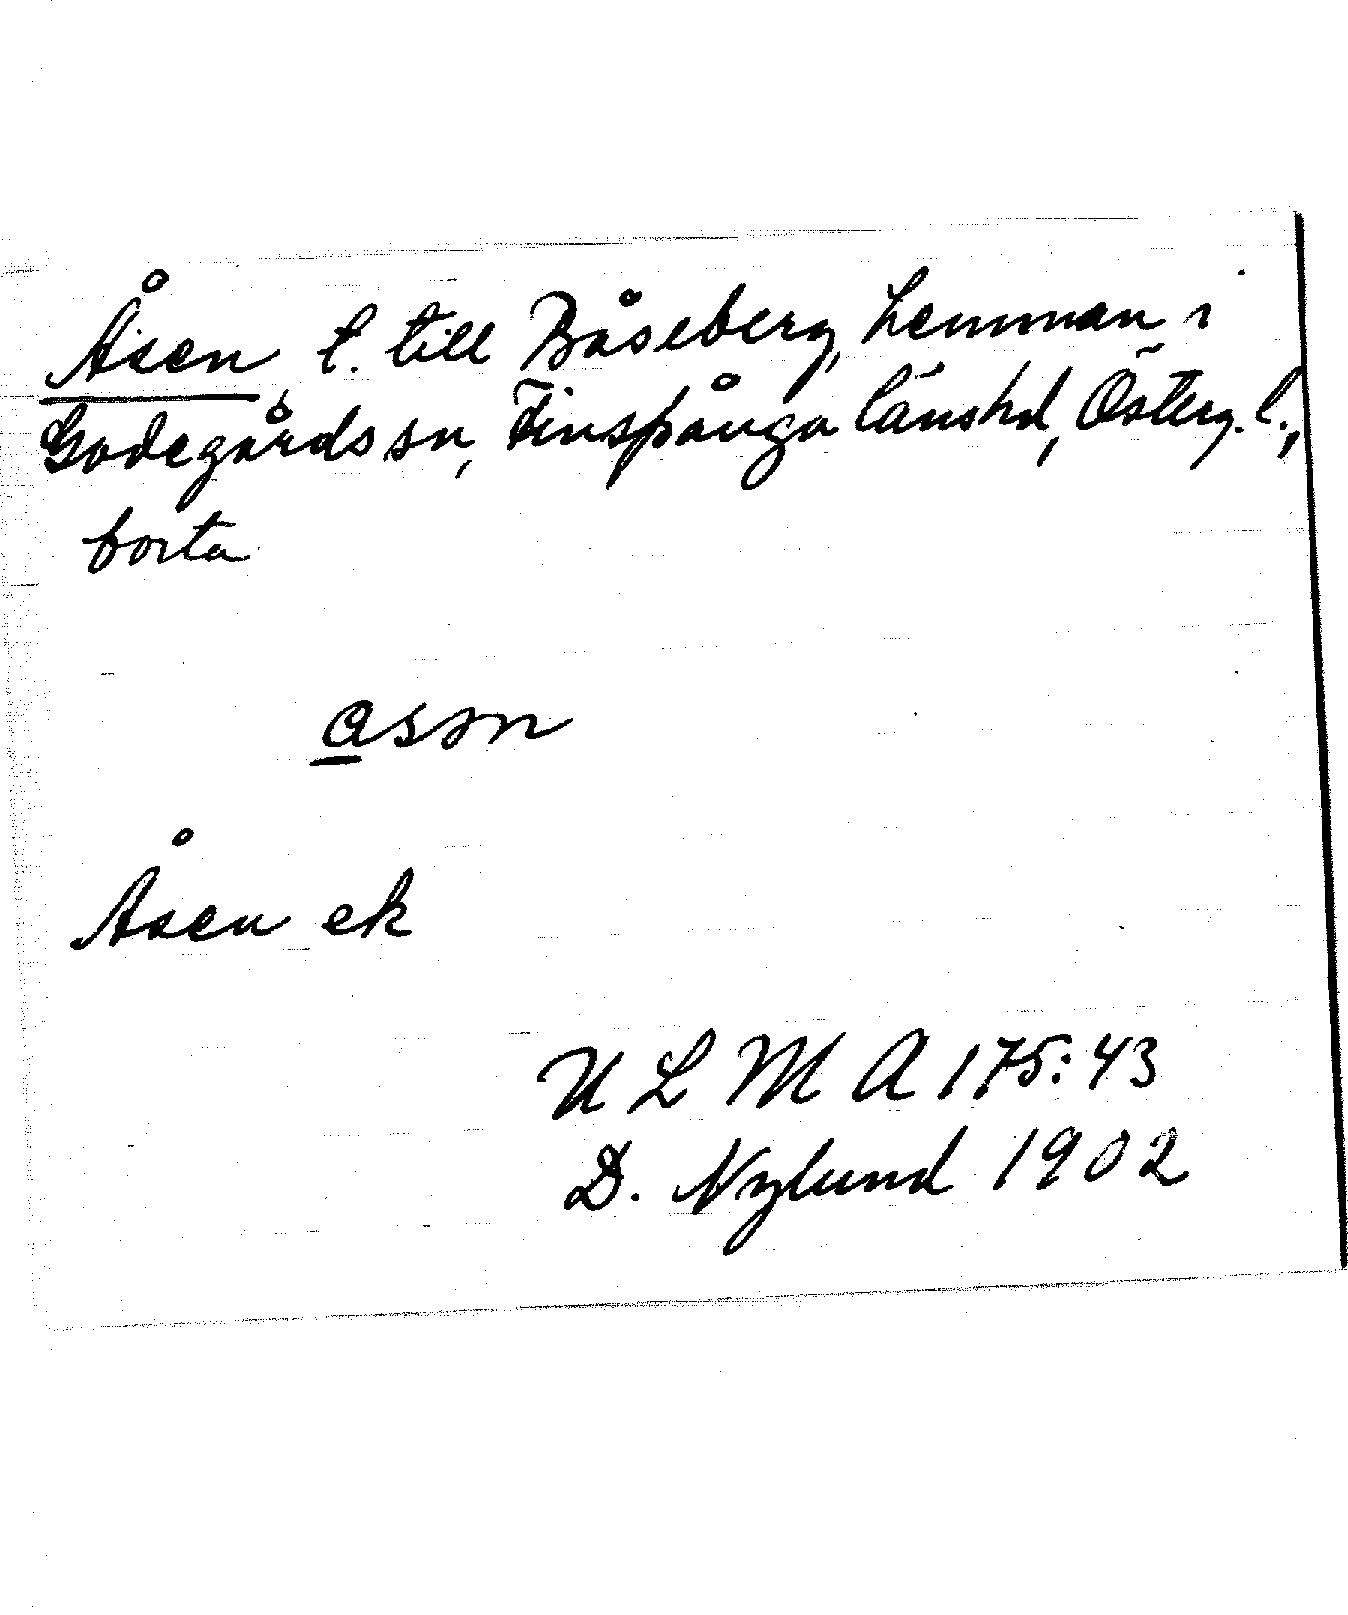 Åsen, t. till Båseberg, hemman i
Godegårds sn, Finspånga länshd, Österg. l.,
borta
åsən
Åsen ek
U L M A 175:43
D. Nylund 1902